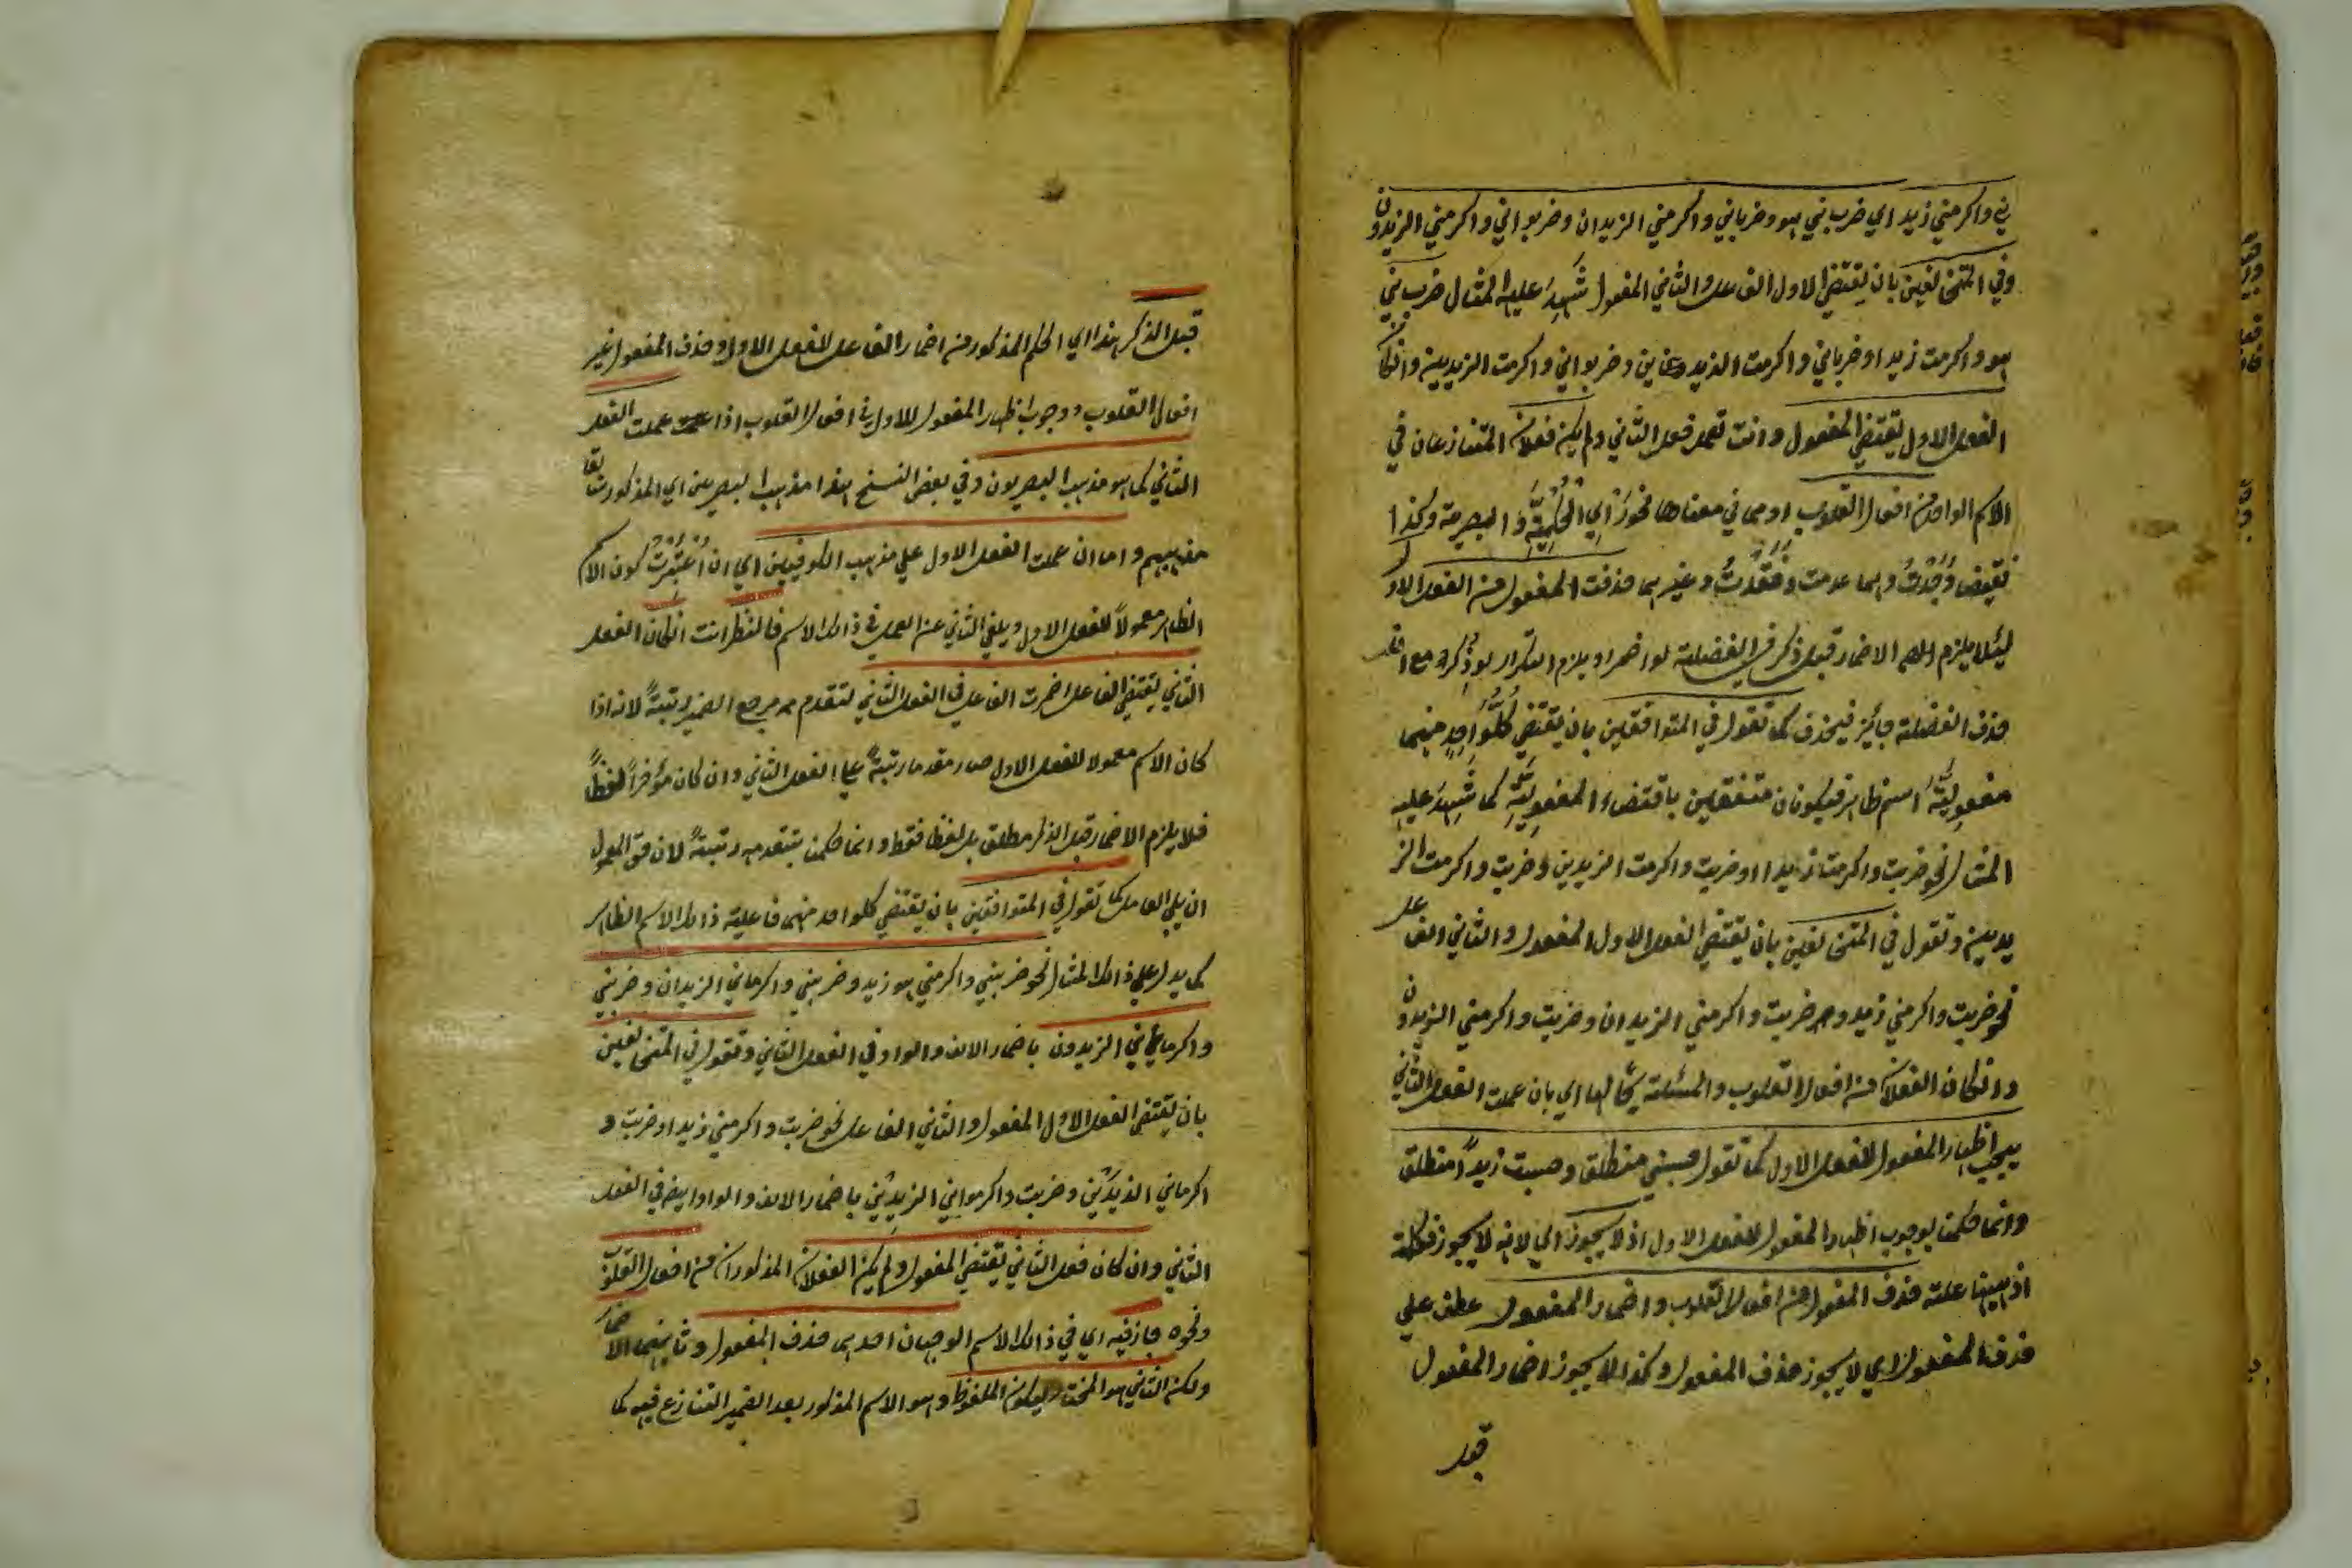 ني واكرمني زيد اي ضرب ني هو وضرباني واكرمني الزيدان وضربواني واكرمني الزيدون
وفي المتخالفين بان يقتضي الاول الفاعل والثاني المفعول شَهِدَ عليه المثال ضرب ني
هو واكرمت زيدا وضرباني واكرمت الزيدين وضربواني واكرمت الزيديين وانكان
الفعل الاول يقتضي المفعول وانت تعمل فعل الثاني ولم يكن فعلان المتنازعان في
الاسم الواحد من افعال القلوب او مما في معناها نحو اي الحُلُمِيَّةِ والبصرية وكذا
نقيض وَجَدْتُ وهما عدمت وفَقَدْتُ وغيرهما حذفت المفعول من الفعل الاول
لئلا يلزم الاضمار قبل ذكر في الفضلة لو اضمر او يلزم التكرار لو ذُكِرَ مع ان
حذف الفضلة جائز فيحذف كما تقول في المتوافقين بان يقتضي كلُّ واحِدٍ منهما
مفعوليَّةَ اسم ظاهر فيكونان متفقين باقتضاء المفعوليَّةِ كما شَهِدَ عليه
المثال نحو ضربت واكرمت زيدا اوضربت واكرمت الزيدين وضربت واكرمت الز
يديين وتقول في المتخالفين بان يقتضي الفعل الاول المفعول والثاني الفاعل
نحو ضربت واكرمني زيد وضربت واكرمني الزيدان وضربت واكرمني الزيدون
وانكان الفعلان من افعال القلوب والمسئلة بحالها اي بان عملت الفعل الثاني
يجب اظهار المفعول للفعل الاول كما تقول حسبني منطلق وحسبت زيداً منطلق
وانما حكمنا بوجوب اظهار المفعول للفعل الاول اذ لا يجوز اي لانه لا يجوز فكلمة
اذ هيهنا علة حذف المفعول من افعال القلوب واضمار المفعول عطف علي
حذف المفعول اي لا يجوز حذف المفعول وكذا لا يجوز اضمار المفعول
قبل
قبل الذكر هذا اي الحكم المذكور من اضمار الفاعل للفعل الاول وحذف المفعول غير
افعال القلوب ووجوب اظهار المفعول للاول في افعال القلوب اذا عملت الفعل
الثاني كما هو مذهب البصريون وفي بعض النسخ هذا مذهب البصرين اي المذكور سابقا
مذهبهم واما ان عملت الفعل الاول علي مذهب الكوفيين اي ان اُعْتُبِرَتْ كون الاسم
الظاهر معمولاً للفعل الاول ويلغي الثاني عن العمل في ذالك الاسم فالنظر انت انكان الفعل
الثاني يقتضي الفاعل اضمرت الفاعل في الفعل الثاني لتقدم مرجع الضمير رتبةً لانه اذا
كان الاسم معمولا للفعل الاول صار مقدما رتبةً علي الفعل الثاني وان كان مؤخراً لفظاً
فلا يلزم الاضمار قبل الذكر مطلق بل لفظا فقط وانما حكمنا بتقدمه رتبةً لان حق المعمول
ان يلي العامل كما تقول في المتوافقين بان يقتضي كلواحد منهما فاعلية ذالك الاسم الظاهر
كما يدل علي ذالك المثال نحو ضربني واكرمني هو زيد وضربني واكرماني الزيدان وضربني
واكرموني الزيدون باضمار الالف والواو في الفعل الثاني وتقول في المتخالفين
بان يقتضي الفعل الاول المفعول والثاني الفاعل نحو ضربت واكرمني زيدا وضربت و
اكرماني الزيدَيْنِ وضربت واكرموني الزيدِيْنَ باضمار الالف والواو ايضا في الفعل
الثاني وان كان فعل الثاني يقتضي المفعول ولم يكن الفعلان المذكوران من افعال القلوب
ونحوه جاز فيه اي في ذالك الاسم الوجهان احدهما حذف المفعول وثانيهما الاضمار
ولكن الثاني هو المختار ليكون الملفوظ وهو الاسم المذكور بعد الضمير المتنازع فيه كما